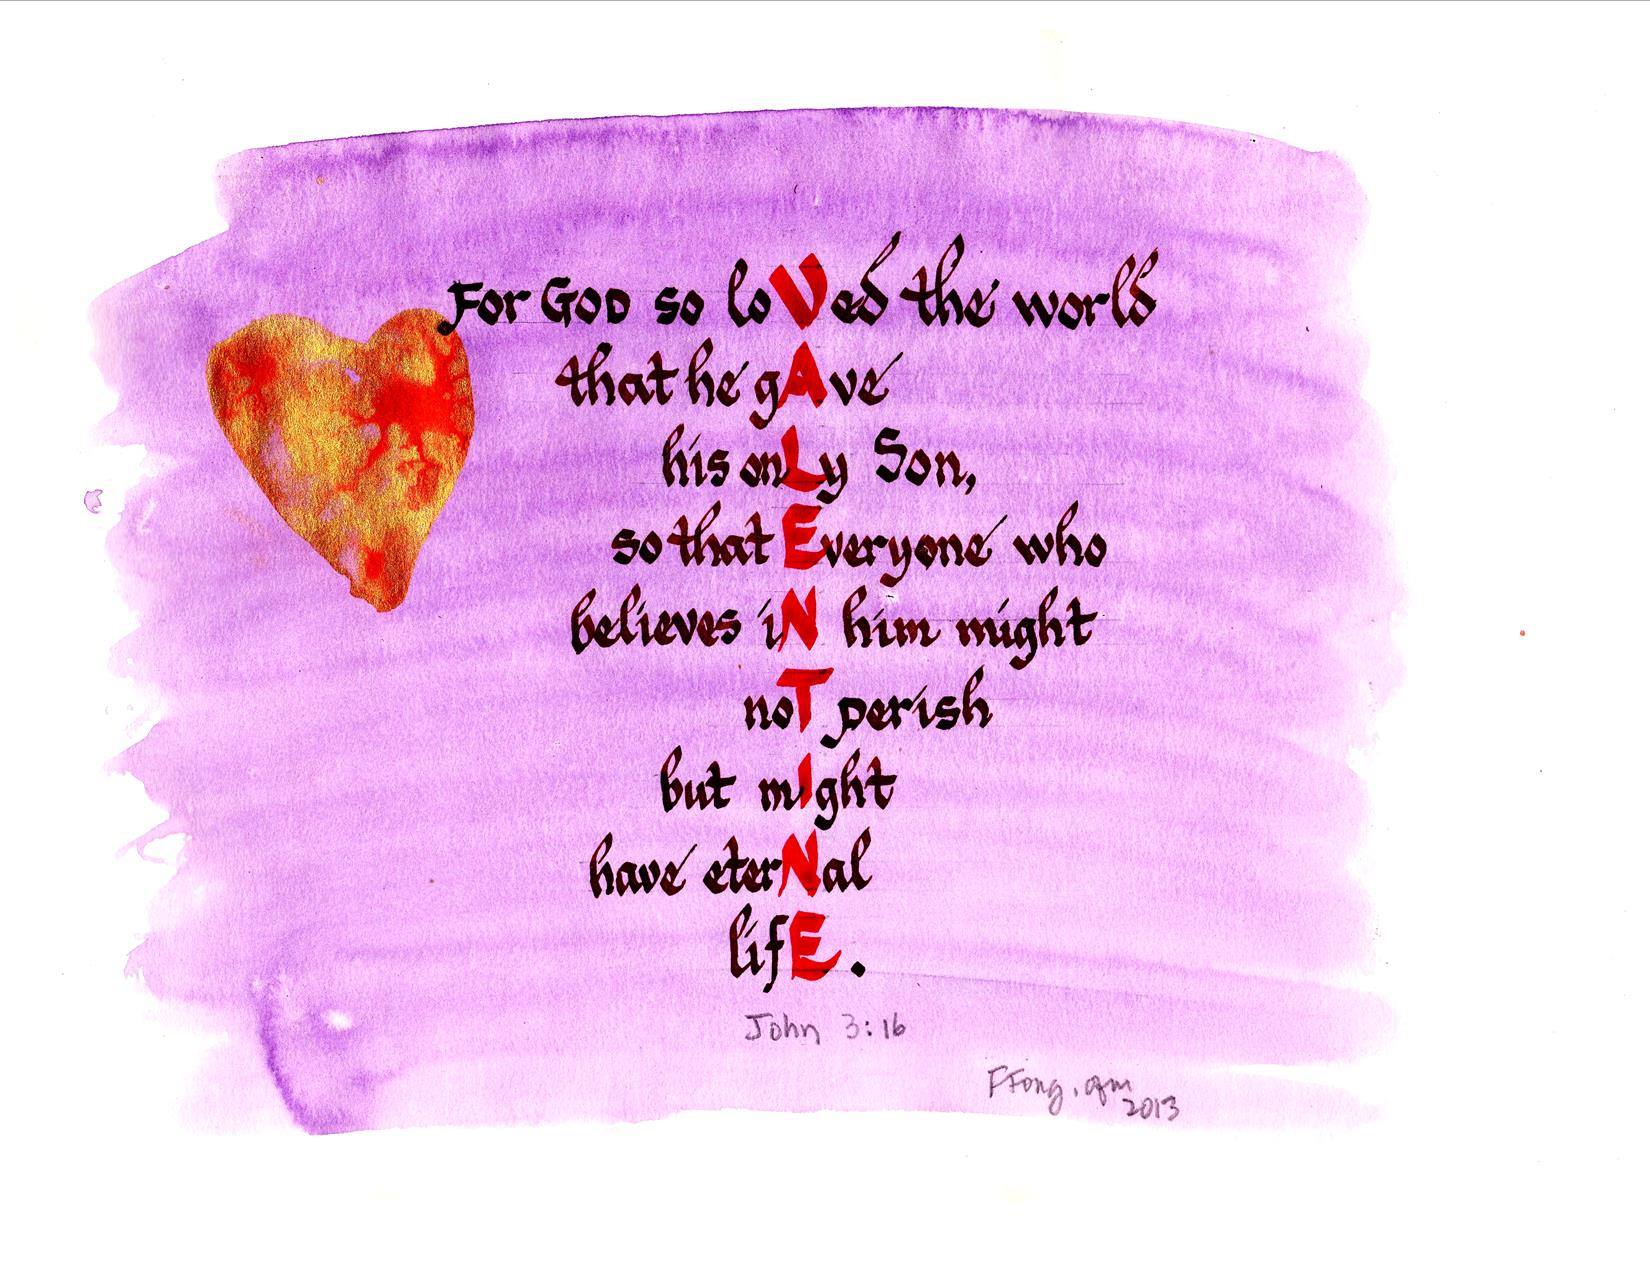 For GOD so loVed the world
that he gAve
his onLy Son,
so that Everyone who
believes iN him might
noT perish
but mIght
have eterNal
lifE.
John 3:16
FFong, ofm
2013